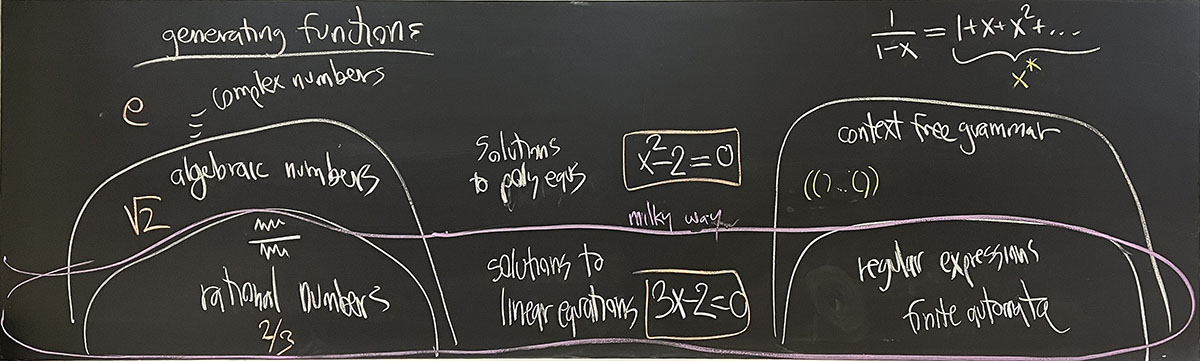 generating functions
1/(1-x) = 1+x+x²+...
x*
e
complex numbers
algebraic numbers
√2
rational numbers
2/3
solutions
to poly eqns
x²-2=0
milky way
solutions to
linear equations
3x-2=0
context free grammar
(()..())
regular expressions
finite automata